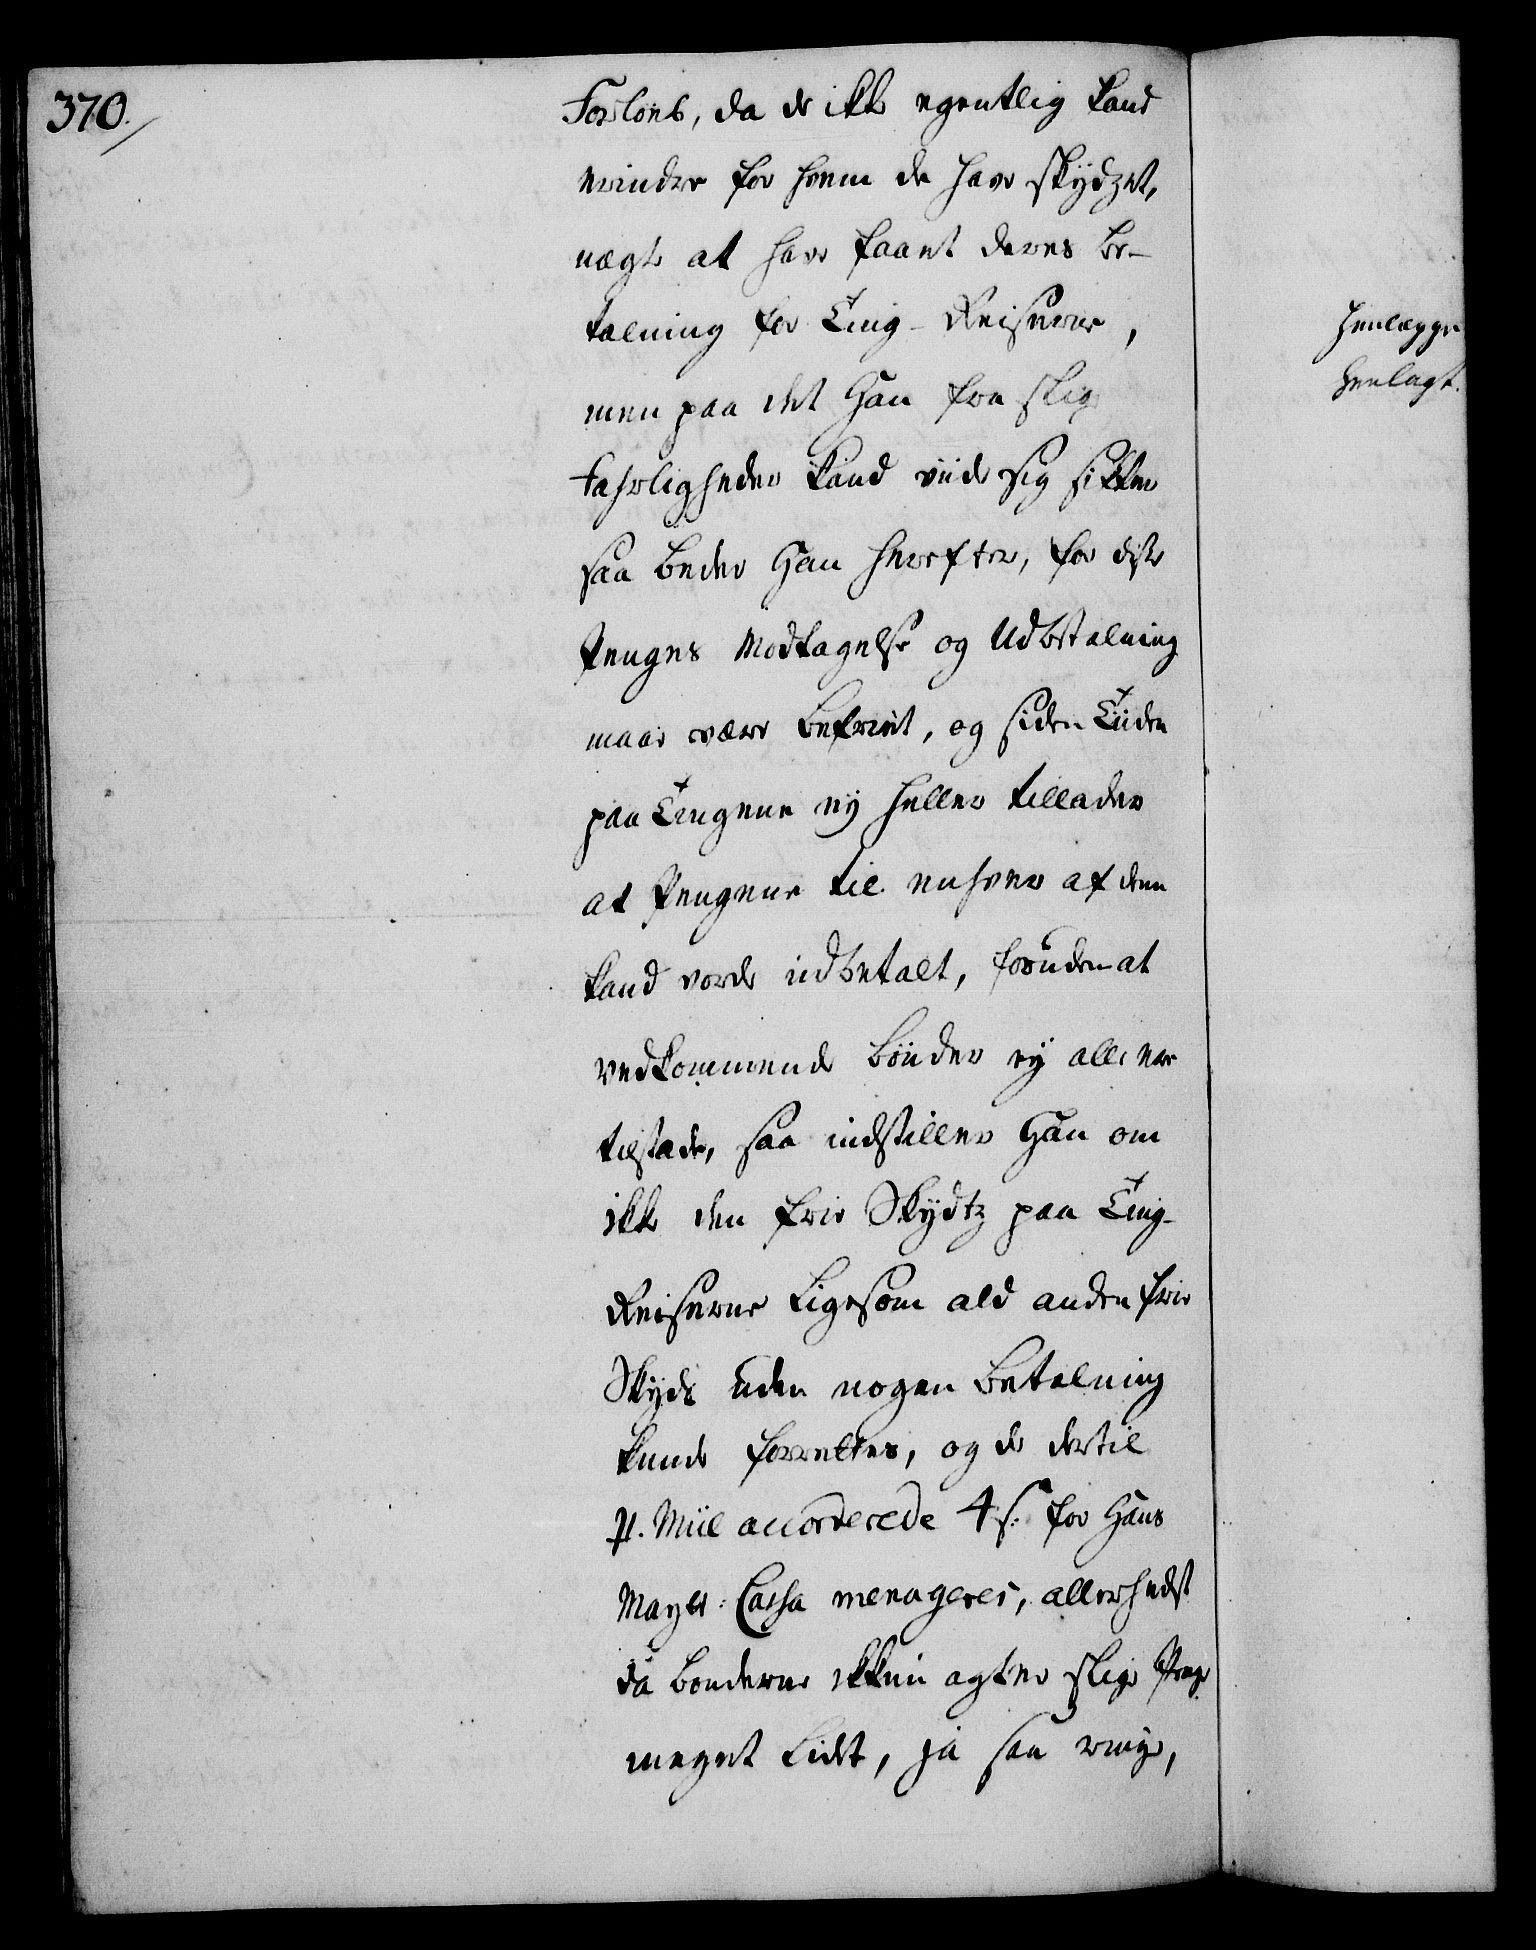 370.
Forløb, da de ikke egentlig kand
erindre for hvem de have skydzet,
nægte at have faaet deres be-
talning for Ting-Reiserne,
men paa det Han fra slige
farligheder kand viide sig sikker
saa beder Han herefter, for disse
Penges Modtagelse og Udbetalning
maae være befriet, og siden Tiiden
paa Tingene ey heller tillader
at Pengene til enhver af dem
kand vorde udbetalt, foruden at
vedkommende bønder ey alle ere
tilstæde, saa indstiller Han om
ikke den frie Skydtz paa Ting-
Reiserne ligesom ald anden frie
Skyds uden nogen betalning
kunde forrettes, og de dertil
pr. Miil accorderede 4 s. for Hans
Mayts: Cassa menageres, allerhelst
da bønderne ikkun agter slige Penge
meget lidet, ja saa ringe,
Henlægges
Henlagt.